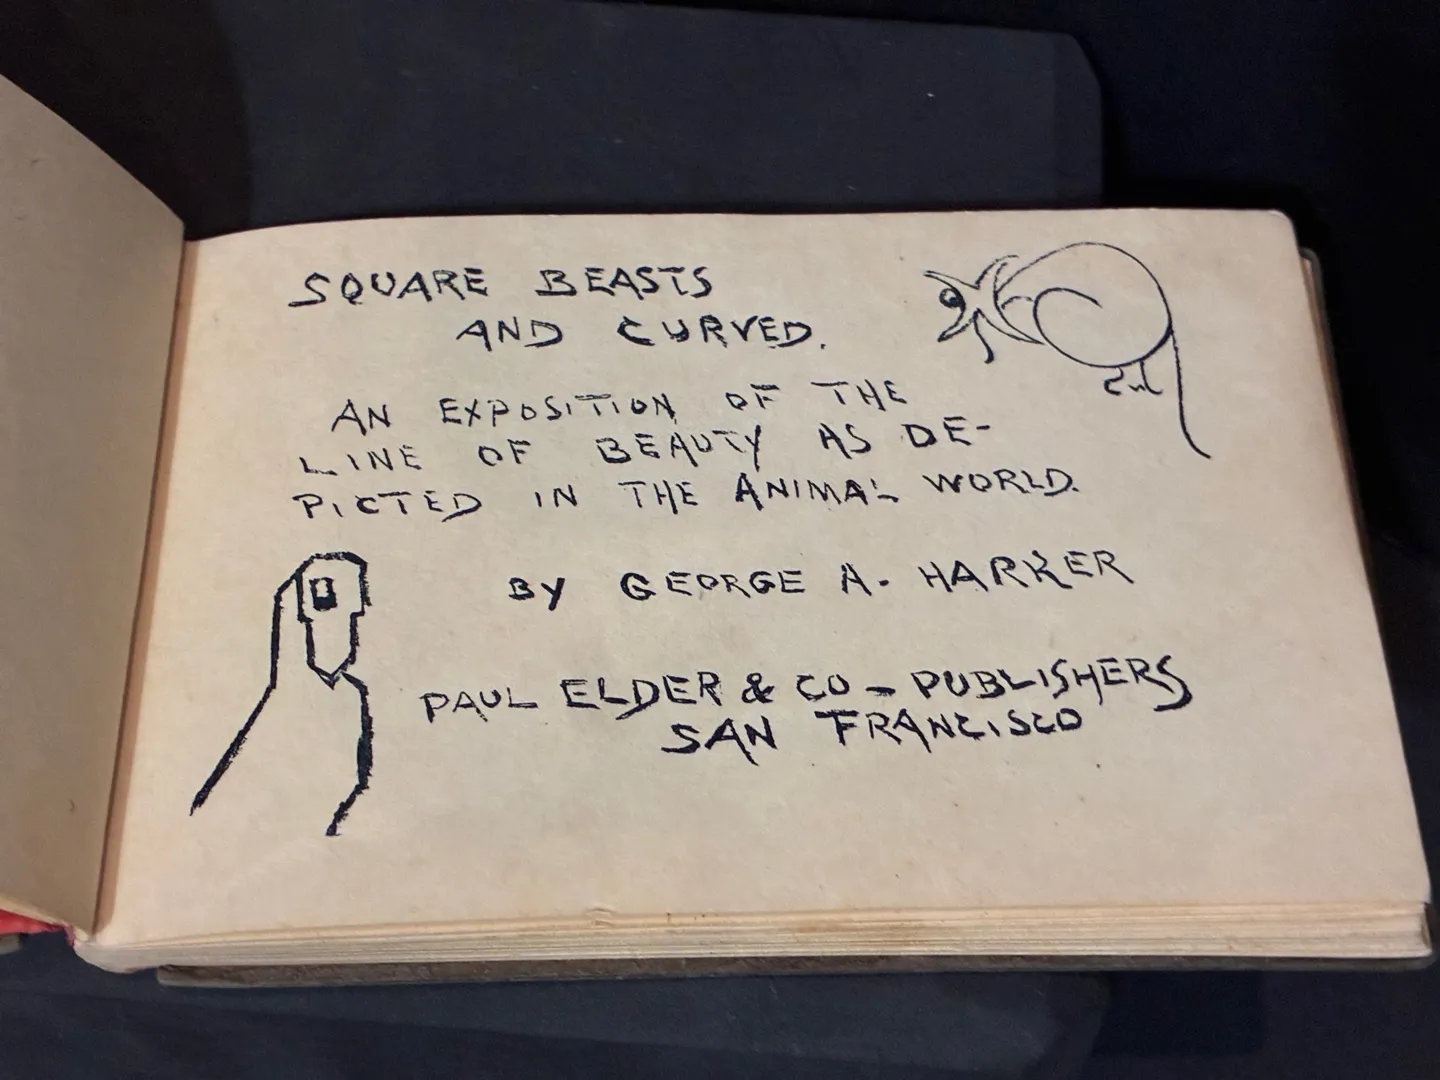 SQUARE BEASTS
AND CURVED.
AN EXPOSITION OF THE
LINE OF BEAUTY AS DE-
PICTED IN THE ANIMAL WORLD.
BY GEORGE A. HARKER
PAUL ELDER & CO - PUBLISHERS
SAN FRANCISCO